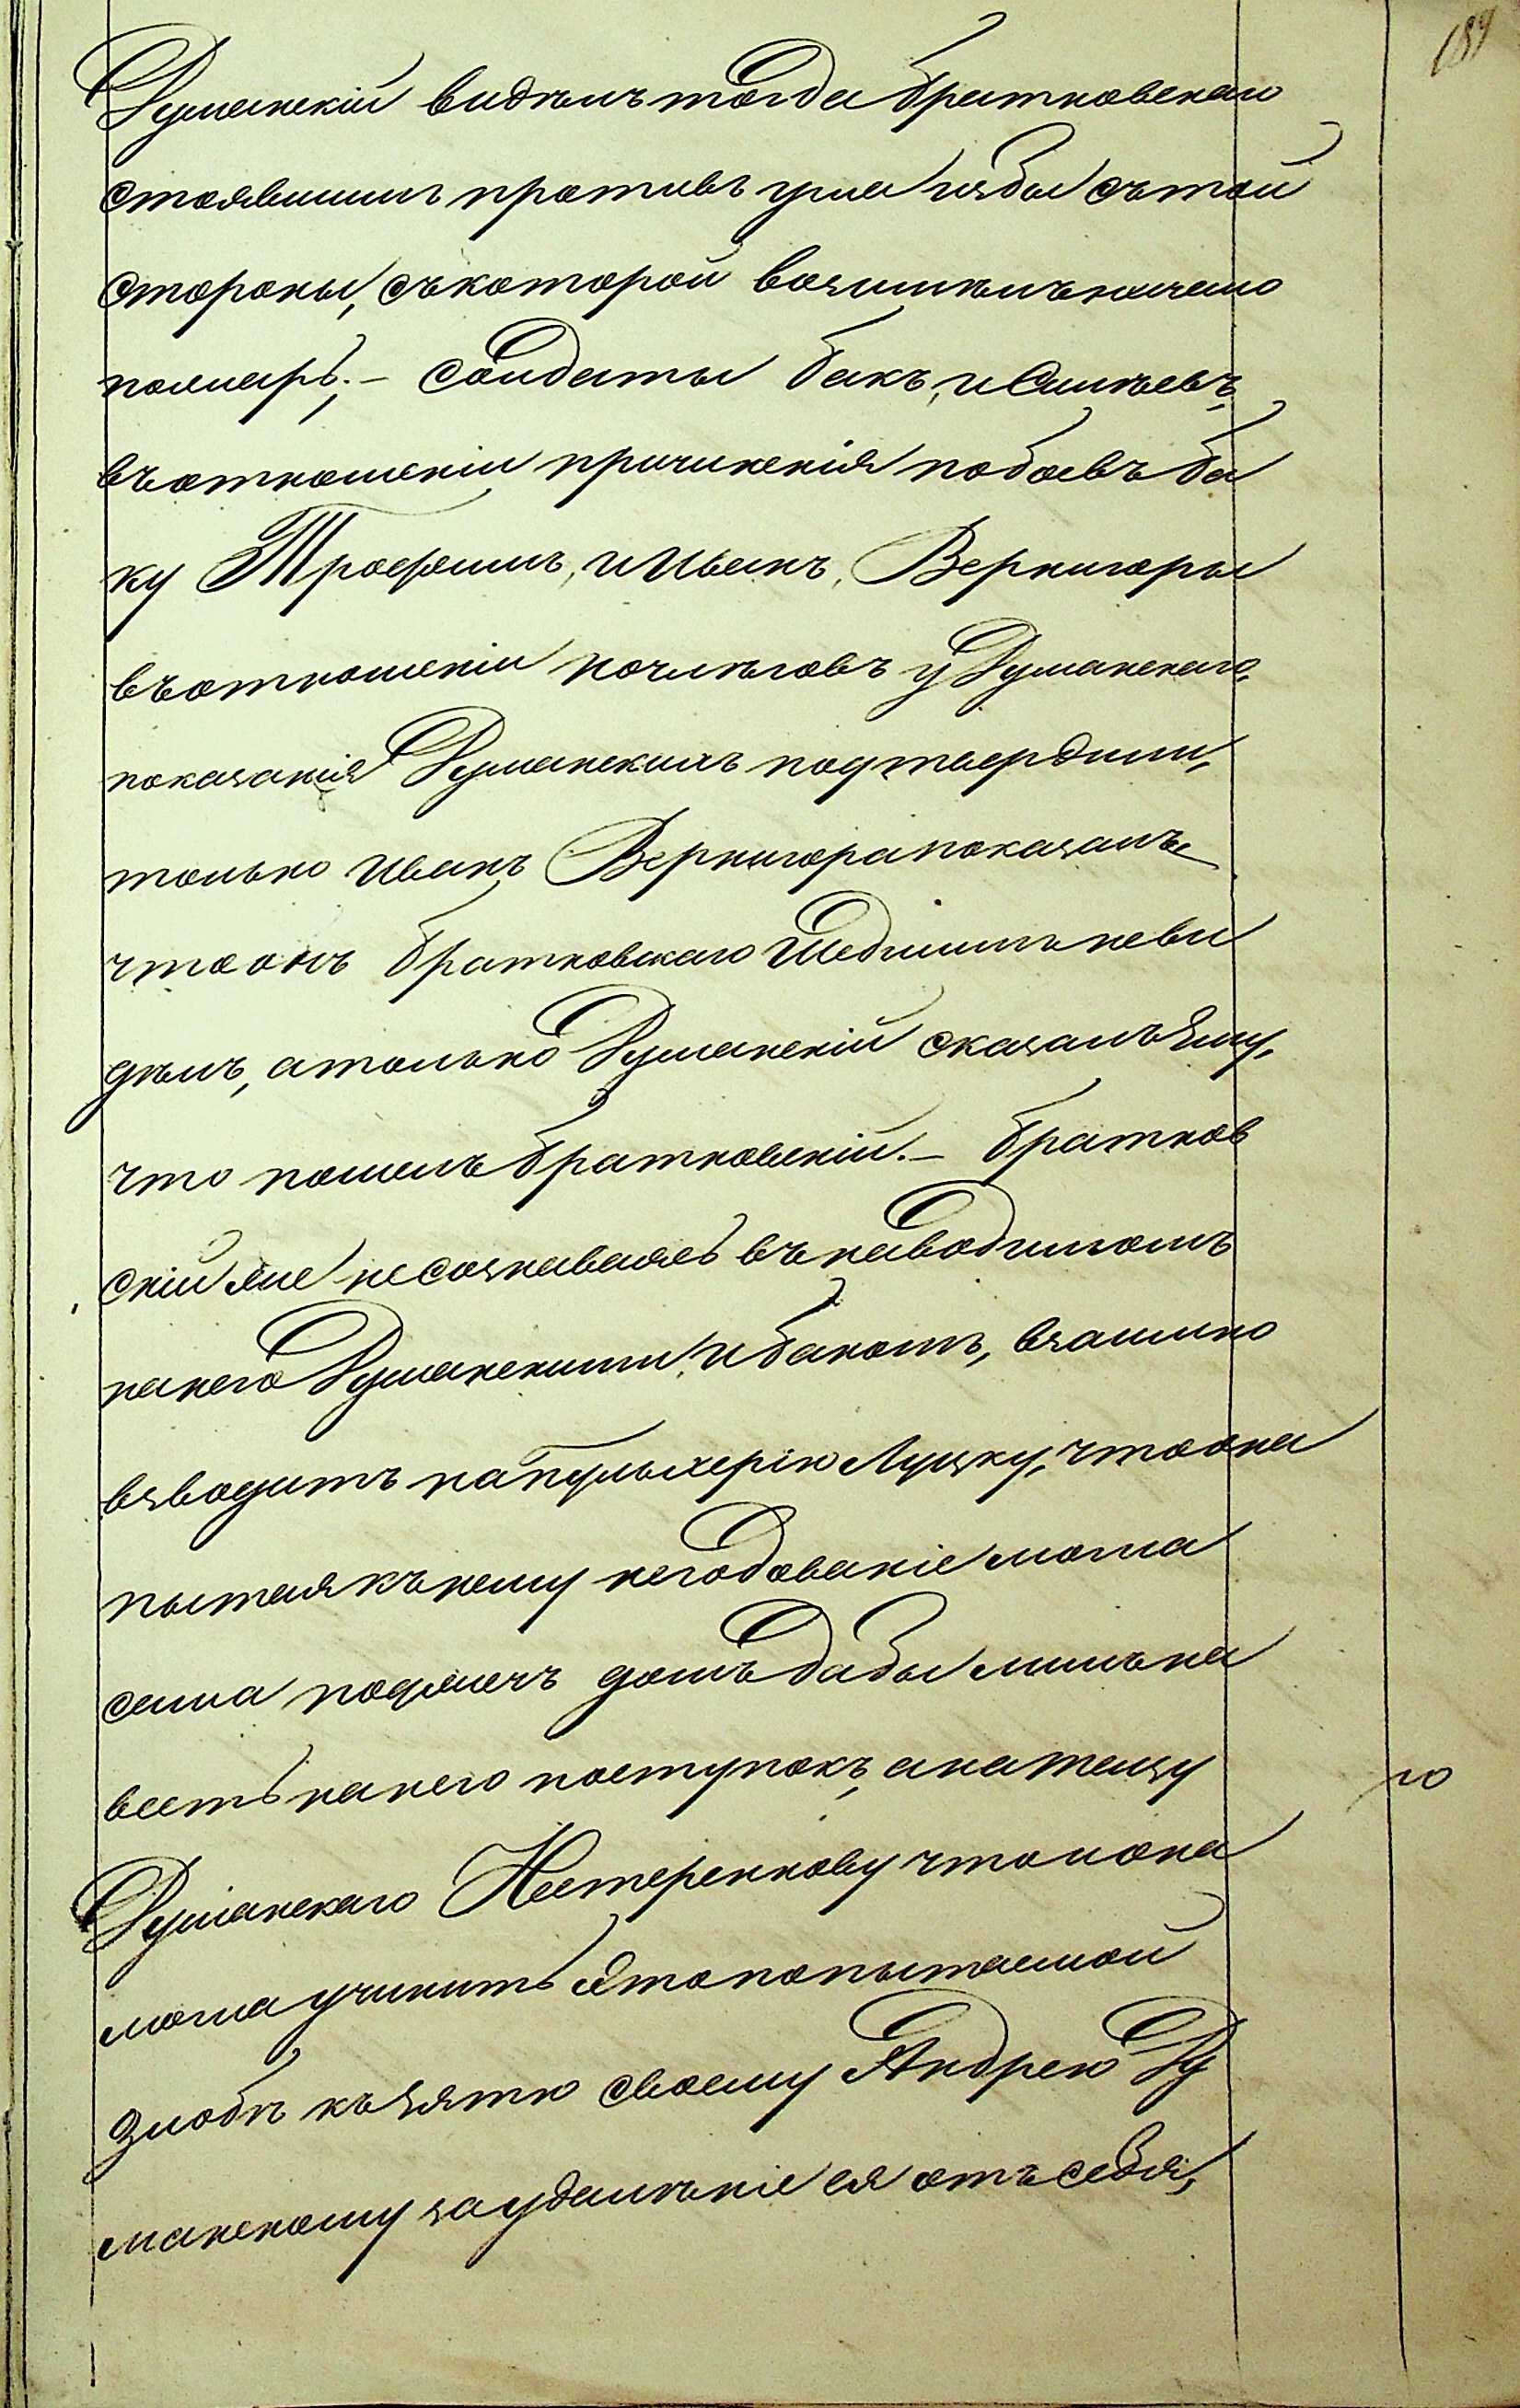 187
Думанскій видѣлъ тогда Братковскаго
стоявшимъ противъ угла избы съ той
стороны, съ которой возникъ начало
пожаръ; – Солдаты Бакъ, и
въ отношеніи причиненія побоевъ Ба
ку Трофимъ, и Иванъ, Вернигоры
въ отношеніи ночлѣговъ у Думанскаго,
показанія Думанскихъ подтвердили,
только Иванъ Вернигора показалъ
что онъ Братковскаго шедшимъ неви
дѣлъ, а только Думанскій сказалъ Ему,
что пошелъ Братковскій. – Братков
скій же несознаваясь въ наводимомъ
на него Думанскими, и Бакомъ, взаимно
взводитъ на Пульхерію Луцку, что она
питая къ нему негодованіе могла
сама поджечь домъ дабы лишь на
весть на него поступокъ, а на тещу
ю
Думанскаго Нестеренкову что и она
могла учинить это по питаемой
злобѣ къ зятю своему Андрею Ду
манскому за удаленіе ея отъ себя,